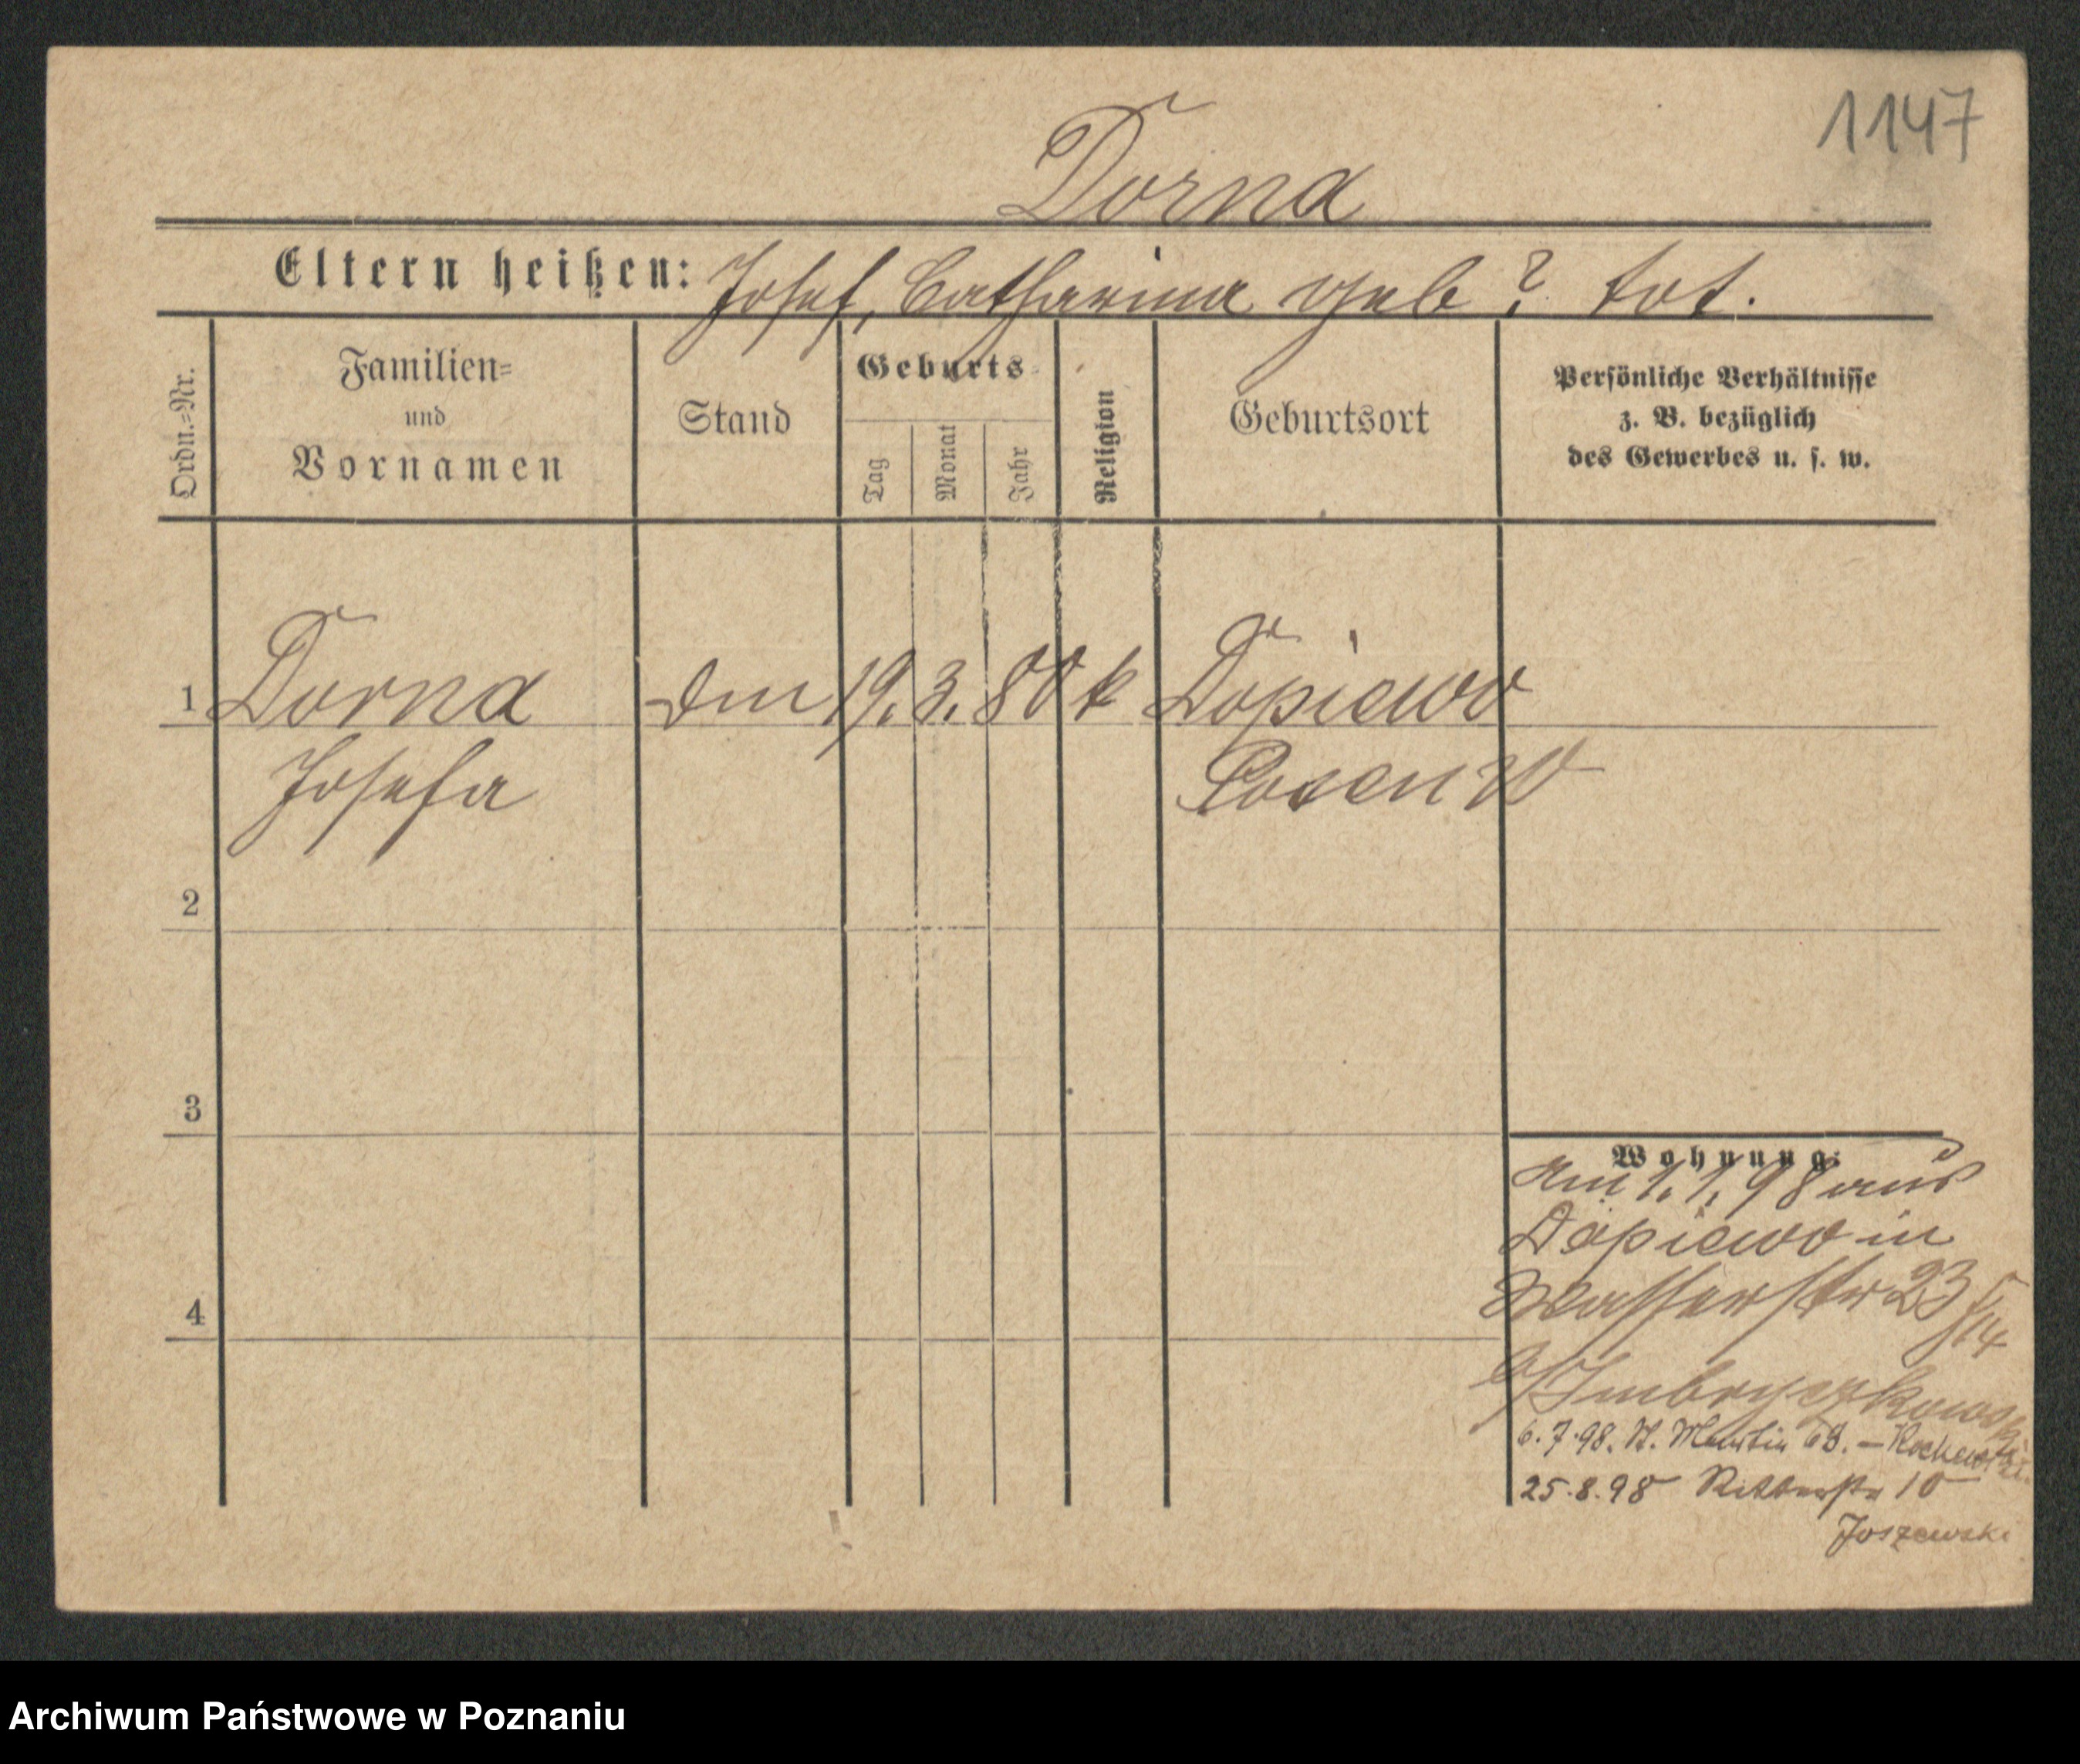 1147
Dorna
Eltern heißen: Josef, Catharina geb ? tot.
Ordn.=Nr.
Familien=
und
Vornamen
Stand
Geburts
Tag
Monat
Jahr
Religion
Geburtsort
Persönliche Verhältnisse
z. B. bezüglich
des Gewerbes u. s. w.
1 Dorna 19. 3. 80 k Dopiewo
Josefa Posen W
2
3
4
Wohnung:
am 1. 1. 98 aus
Dopiewo in
Wasserstr 23
6.7.98. St. Martin 68. –
25.8.98 Ritterstr 10
Joszewski
Archiwum Państwowe w Poznaniu